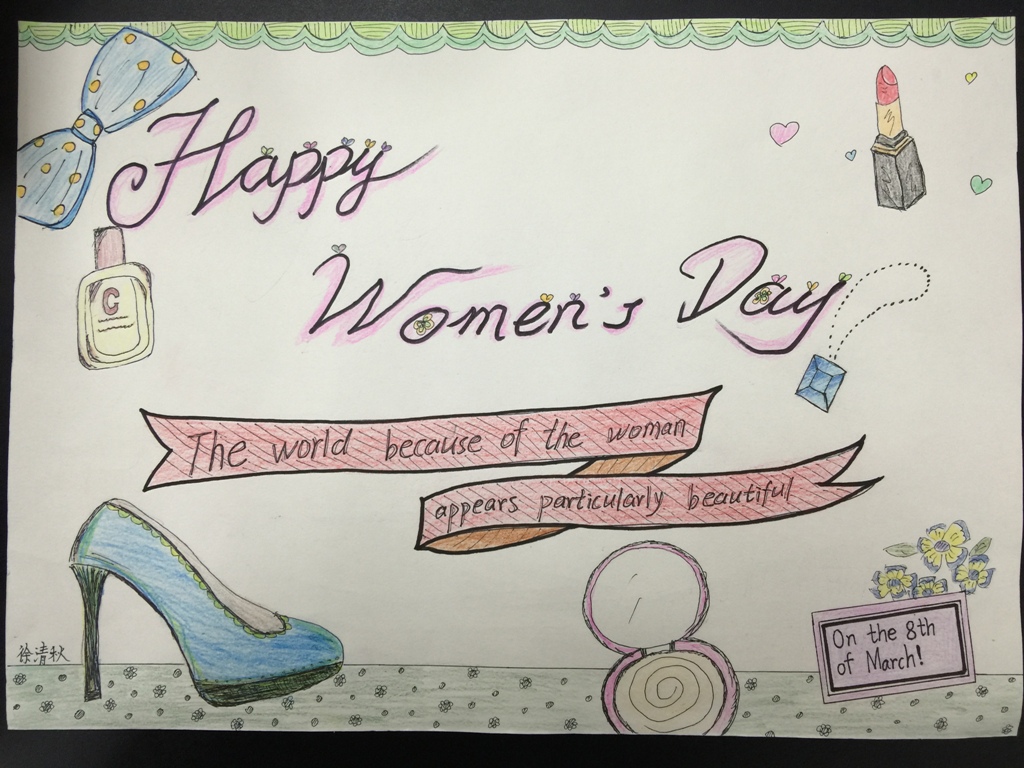 Happy
Women's Day
C
The world because of the woman
appears particularly beautiful
徐清秋
On the 8th
of March!